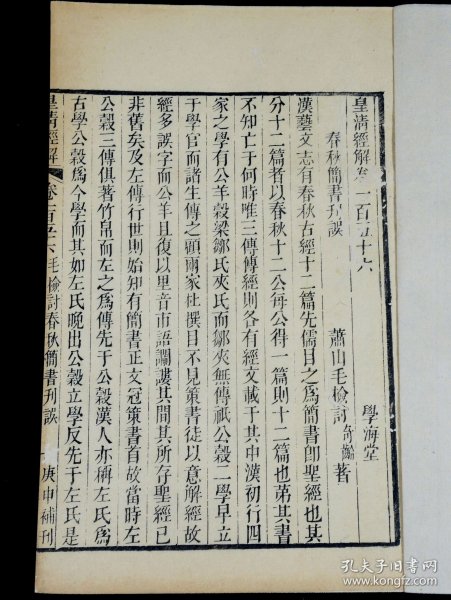 皇清經解卷一百五十六
學海堂
春秋簡書刊誤
蕭山毛檢討奇齡著
漢藝文志有春秋古經十二篇先儒目之爲簡書卽聖經也其
分十二篇者以春秋十二公每公得一篇則十二篇也第其書
不知亡于何時唯三傳傳經則各有經文載于其中漢初行四
家之學有公羊穀梁鄒氏夾氏而鄒夾無傳祇公穀二學早立
于學官而諸生傳之顧兩家杜撰目不見策書徒以意解經故
經多誤字而公羊且復以里音市語讕謱其間其所存聖經已
非舊矣及左傳行世則始知有簡書正文冠策書首故當時左
公穀三傳俱著竹帛而左之爲傳先于公穀漢人亦稱左氏爲
古學公穀爲今學而其如左氏晚出公穀立學反先于左氏是
皇清經解
卷一百五十六毛檢討春秋簡書刊誤
一
庚申補刊
孔夫子旧书网
www.kongfz.com